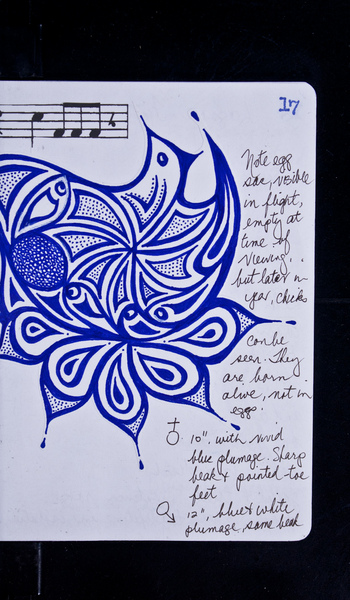 17
Note egg
sac, visible
in flight,
empty at
time of
viewing...
but later in
year, chicks
can be
seen. They
are born
alive, not in
eggs.
♁ 10", with vivid
blue plumage. Sharp
beak & pointed-toe
feet
12", blue & white
plumage, same beak